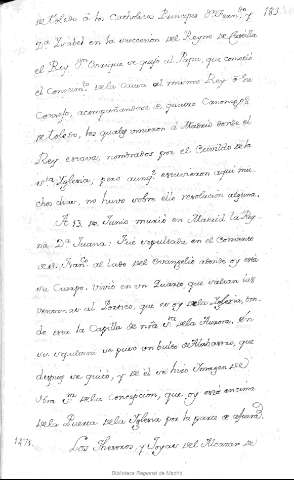 183
de toledo â la Catholica Princesa Dª Fernº, y
Dª Isabel en la succession del Reyno de Castilla
el Rey Dⁿ Enrique se quejó al Papa, que cometió
el Conocimtº de la Causa al mismo Rey ô Su
Consejo, acompañandose de quatro Canonigos
de toledo, los quales vinieron á Madrid donde el
Rey estava, nombrados por el Cavildo de la
Sta Iglesia, pero aunqe estuvieron aqui mu-
chos dias, no huvo sobre ello resolucion alguna.
A 13 de Junio murió en Madrid la Rey-
na Dª Juana: Fué sepultada en el Convento
de Sn Franco al lado del Evangelio adonde oy está
su Cuerpo. Vivió en un Quarto, que caían las
ventanas al Portico, que es oy de la Iglesia, don-
de está la Capilla de nra Sra de la Aurora. En
su sepultura se puso un bulto de Alabastro, que
despues se quitó, y de él se hizo Imagen de
Ntra Sra de la Concepcion, que oy está encima
de la Puerta de la Iglesia por la parte de afuera.
1475. Los Thesoros, y Joyas del Alcazar de
Biblioteca Regional de Madrid